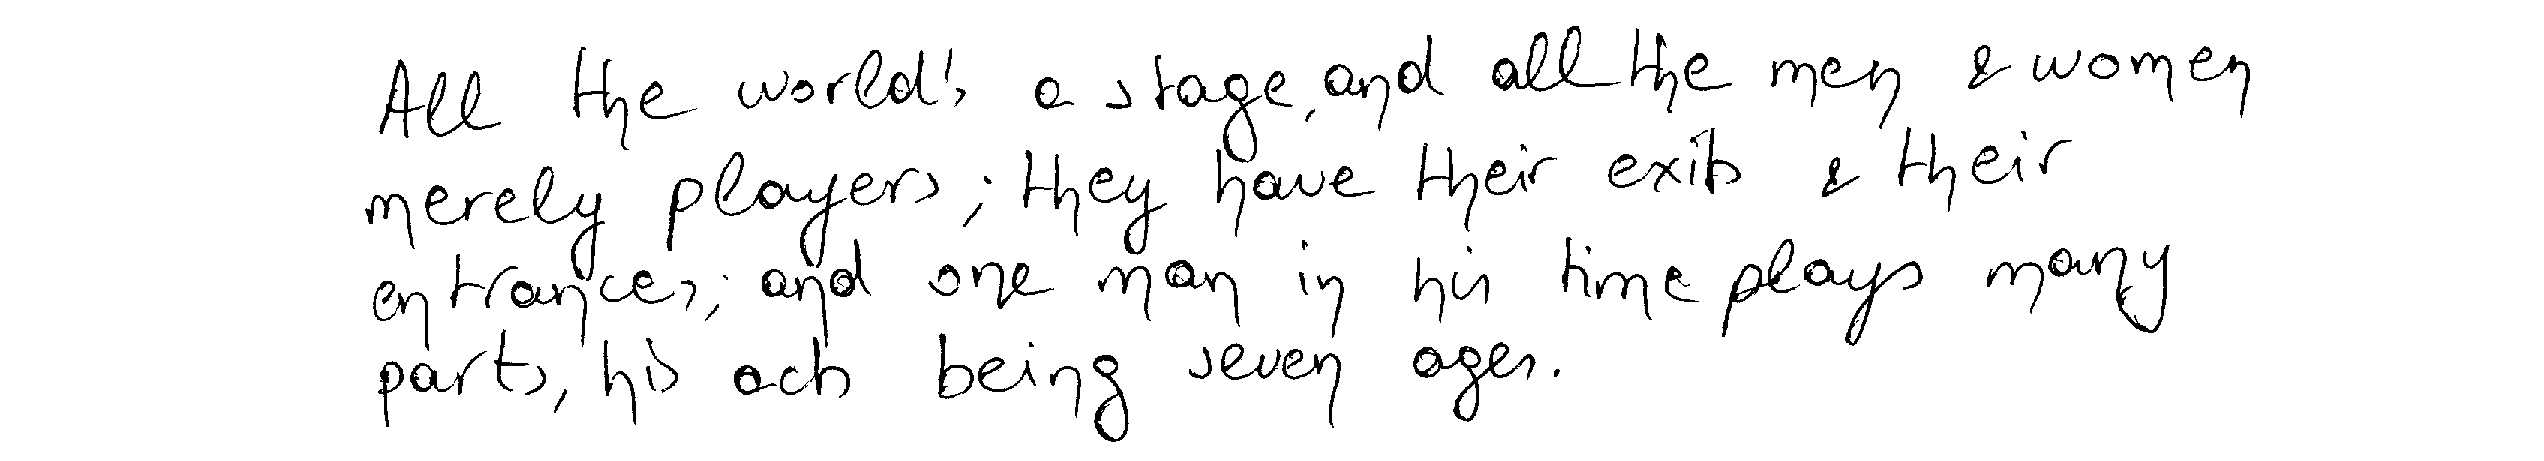 All the world's a stage, and all the men & women
merely players; they have their exits & their
entrances; and one man in his time plays many
parts, his acts being seven ages.